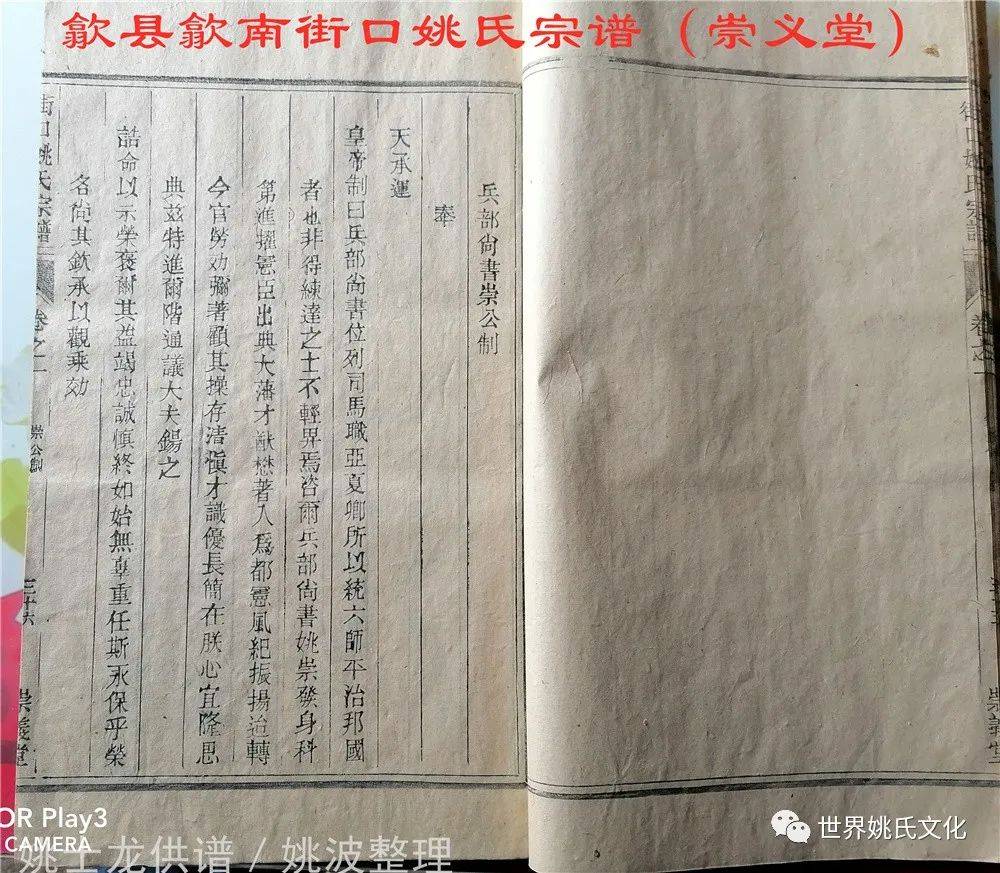 歙县歙南街口姚氏宗谱（崇义堂）
兵部尚書崇公制
奉
天承運
皇帝制曰兵部尚書位列司馬職亞夏卿所以統六師平治邦國
者也非得練達之士不輕畀焉咨爾兵部尚書姚崇發身科
第進擢憲臣出典大藩才猷懋著入爲都憲風紀振揚迨轉
今官勞効彌著顧其操存清慎才識優長簡在朕心宜隆恩
典兹特進爾階通議大夫錫之
誥命以示榮褒爾其益竭忠誠慎終如始無辜重任斯永保乎榮
名尚其欽承以觀乘効
街口姚氏宗譜
卷之一
崇公制
三十六
崇義堂
街口姚氏宗譜
卷之一
崇義堂
OR Play3
CAMERA
姚土龙供谱/姚波整理
世界姚氏文化